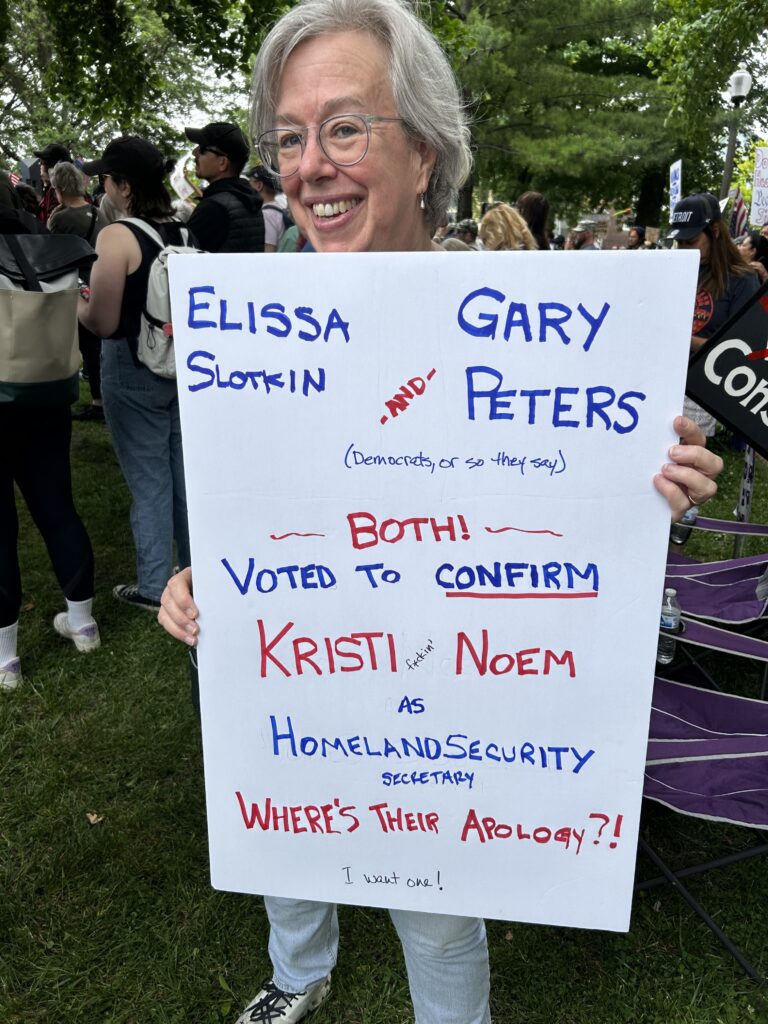 ELISSA
SLOTKIN
-AND-
GARY
PETERS
(Democrats, or so they say)
BOTH!
VOTED TO CONFIRM
KRISTI f*ckin' NOEM
AS
HOMELAND SECURITY
SECRETARY
WHERE'S THEIR APOLOGY?!
I want one!
DETROIT
Cons